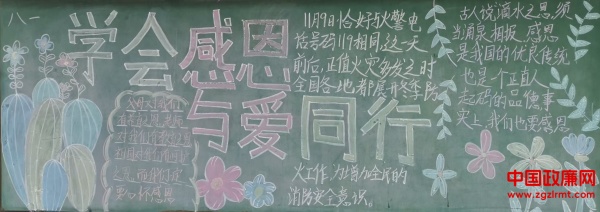 八一
学会感恩
与爱同行
11月9日恰好与火警电
话号码119相同,这一天
前后,正值火灾多发之时
全国各地都展开冬季防
火工作,为增加全民的
消防安全意识。
古人说滴水之恩,须
当涌泉相报,感恩
是我国的优良传统
也是个正直人
起码的品德事
实上,我们也要感恩
要心怀感恩
中国政廉网
www.zgzlrmt.com